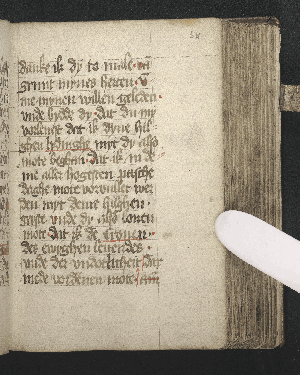 danke ik dy to male vn
grunt mynes herten v
me mynen willen geleden
vnde bydde dy dat du my
vorlenest dat ik dyne hil
ghen hochtyt myt dy also
mote began dat ik in de
me alder hogesten pasche
daghe mote vorvullet wer
den myt deme hilghen
geiste vnde dy also louen
mote dat ik de cronen
des ewyghen leuendes
vnde der vndotlicheit dar
mede vordenen mote